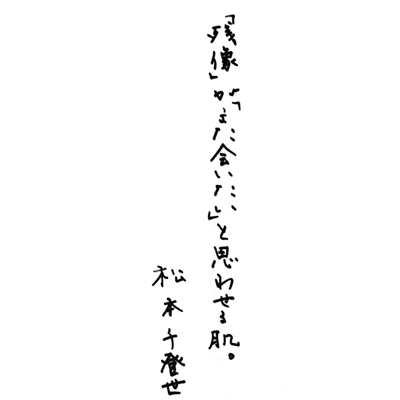 「残像」が「また会いたい」と思わせる肌。
松本千登世